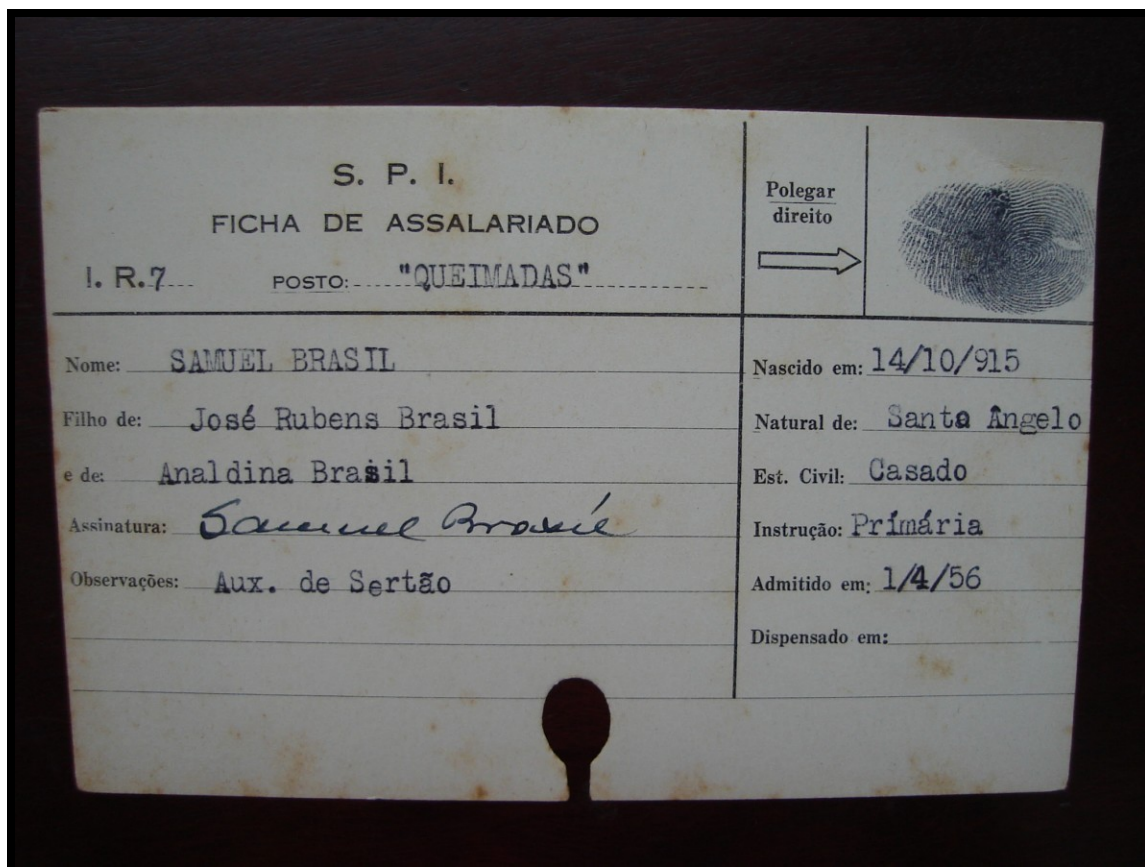 S. P. I.
FICHA DE ASSALARIADO
I. R. 7 POSTO: "QUEIMADAS"
Polegar
direito
Nome: SAMUEL BRASIL
Filho de: José Rubens Brasil
e de: Analdina Brasil
Assinatura: Samuel Brasil
Observações: Aux. de Sertão
Nascido em: 14/10/915
Natural de: Santa Ângelo
Est. Civil: Casado
Instrução: Prímária
Admitido em: 1/4/56
Dispensado em: